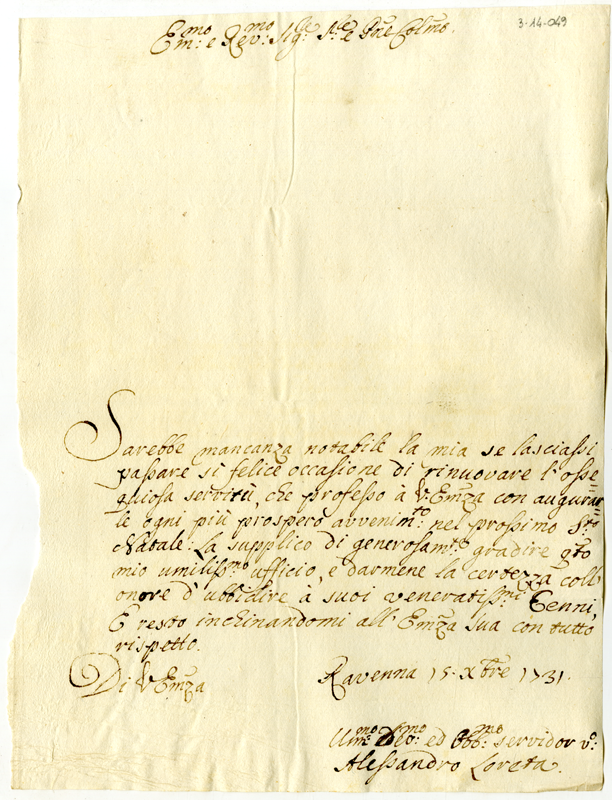 3-14-049
Em:mo e Rev:mo Sig:re S:re e Pne Colmo.
Sarebbe mancanza notabile la mia se lasciassi
passare si felice occasione di rinuovare l'osse
quiosa servitù, che professo à V Emza con augurar
le ogni più prospero avvenim:to nel prossimo S:to
Natale: La supplico di generosam:te gradire qto
mio umiliss:mo ufficio, e darmene la certezza coll
onore d'ubbidire à suoi veneratiss:mi Cenni,
E resto inchinandomi all'Emza sua con tutto
rispetto.
Di V Emza
Ravenna 15. Xbre 1731.
Um:mo Dev:mo ed Obb:mo servidor v:o
Alessandro Loreta.